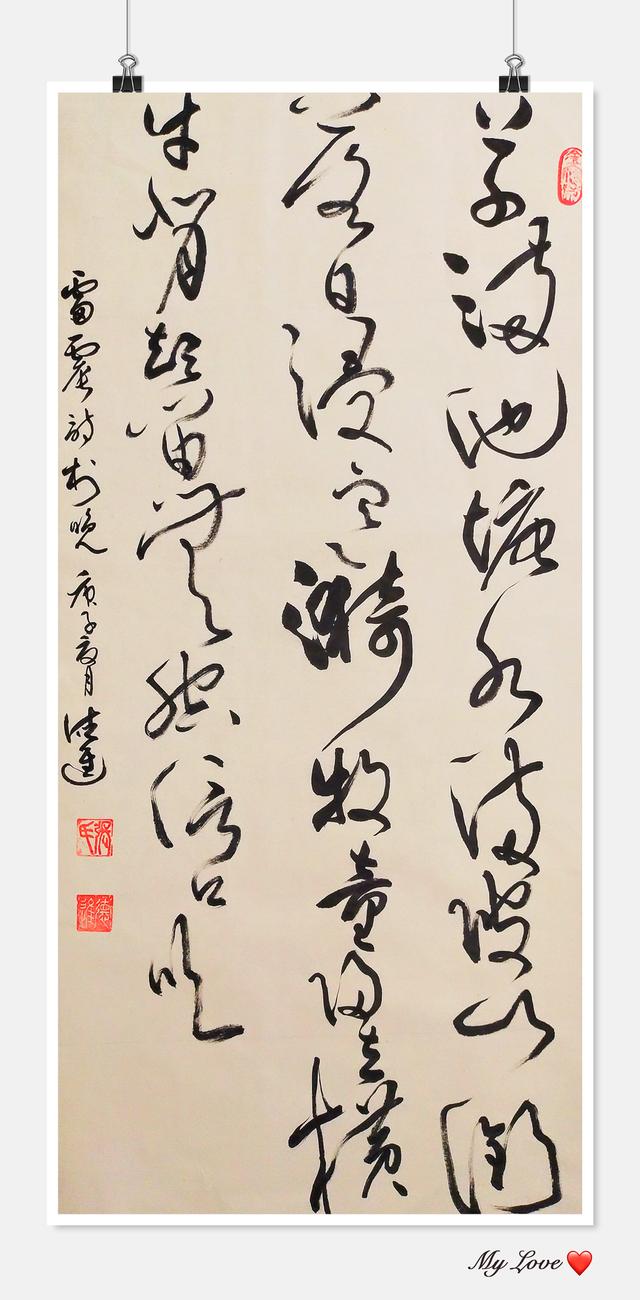 草滿池塘水滿陂山銜
落日浸寒漪牧童歸去橫
牛背短笛無腔信口吹
雷震詩村晚 庚子夏月
My Love ❤️